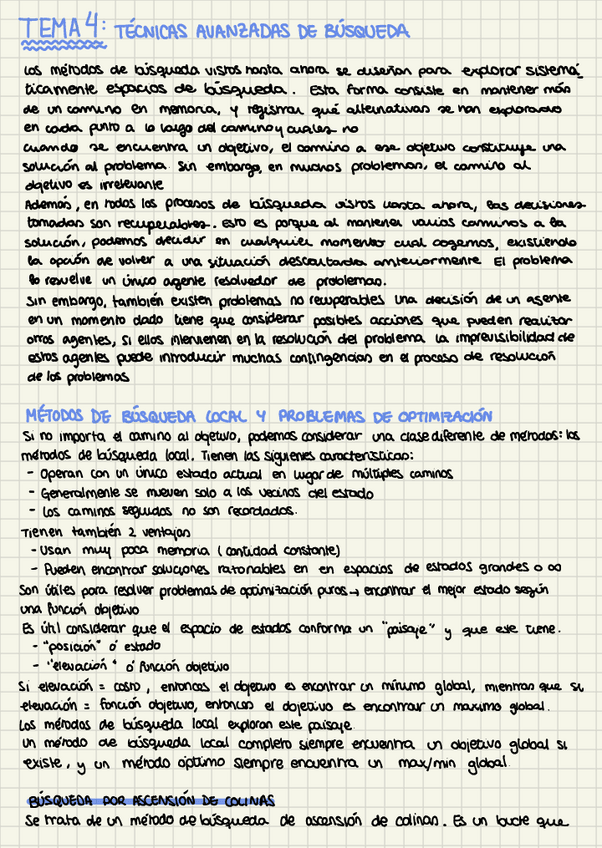 TEMA 4: TÉCNICAS AVANZADAS DE BÚSQUEDA
Los métodos de búsqueda vistos hasta ahora se diseñan para explorar sistemá-
ticamente espacios de búsqueda. Esta forma consiste en mantener más
de un camino en memoria, y registrar qué alternativas se han explorado
en cada punto a lo largo del camino y cuales no
cuando se encuentra un objetivo, el camino a ese objetivo constituye una
solución al problema. Sin embargo, en muchos problemas, el camino al
objetivo es irrelevante
Además, en todos los procesos de búsqueda vistos hasta ahora, las decisiones
tomadas son recuperables. Esto es porque al mantener varios caminos a la
solución, podemos decidir en cualquier momento cual cogemos, existiendo
la opción de volver a una situación descartada anteriormente El problema
lo resuelve un único agente resolvedor de problemas.
Sin embargo, también existen problemas no recuperables una decisión de un agente
en un momento dado tiene que considerar posibles acciones que pueden realizar
otros agentes, si ellos intervienen en la resolución del problema la imprevisibilidad de
estos agentes puede introducir muchas contingencias en el proceso de resolución
de los problemas
MÉTODOS DE BÚSQUEDA LOCAL Y PROBLEMAS DE OPTIMIZACIÓN
Si no importa el camino al objetivo, podemos considerar una clase diferente de métodos: los
métodos de búsqueda local. Tienen las siguienes características:
- Operan con un único estado actual en lugar de múltiples caminos
- Generalmente se mueven solo a los vecinos del estado
- Los caminos seguidos no son recordados.
Tienen también 2 ventajas
- Usan muy poca memoria (cantidad constante)
- Pueden encontrar soluciones razonables en en espacios de estados grandes o ∞
Son útiles para resolver problemas de optimización puros → encontrar el mejor estado según
una función objetivo
Es útil considerar que el espacio de estados conforma un "paisaje" y que este tiene.
- "posición" ó estado
- "elevación" ó función objetivo
Si elevación = costo, entonces el objetivo es encontrar un mínimo global, mientras que si
elevación = función objetivo, entonces el objetivo es encontrar un maximo global.
Los métodos de búsqueda local exploran este paisaje.
Un método de búsqueda local completo siempre encuentra un objetivo global si
existe, y un método óptimo siempre encuentra un max/min global.
BÚSQUEDA POR ASCENSIÓN DE COLINAS
Se trata de un método de búsqueda de ascensión de colinas. Es un bucle que